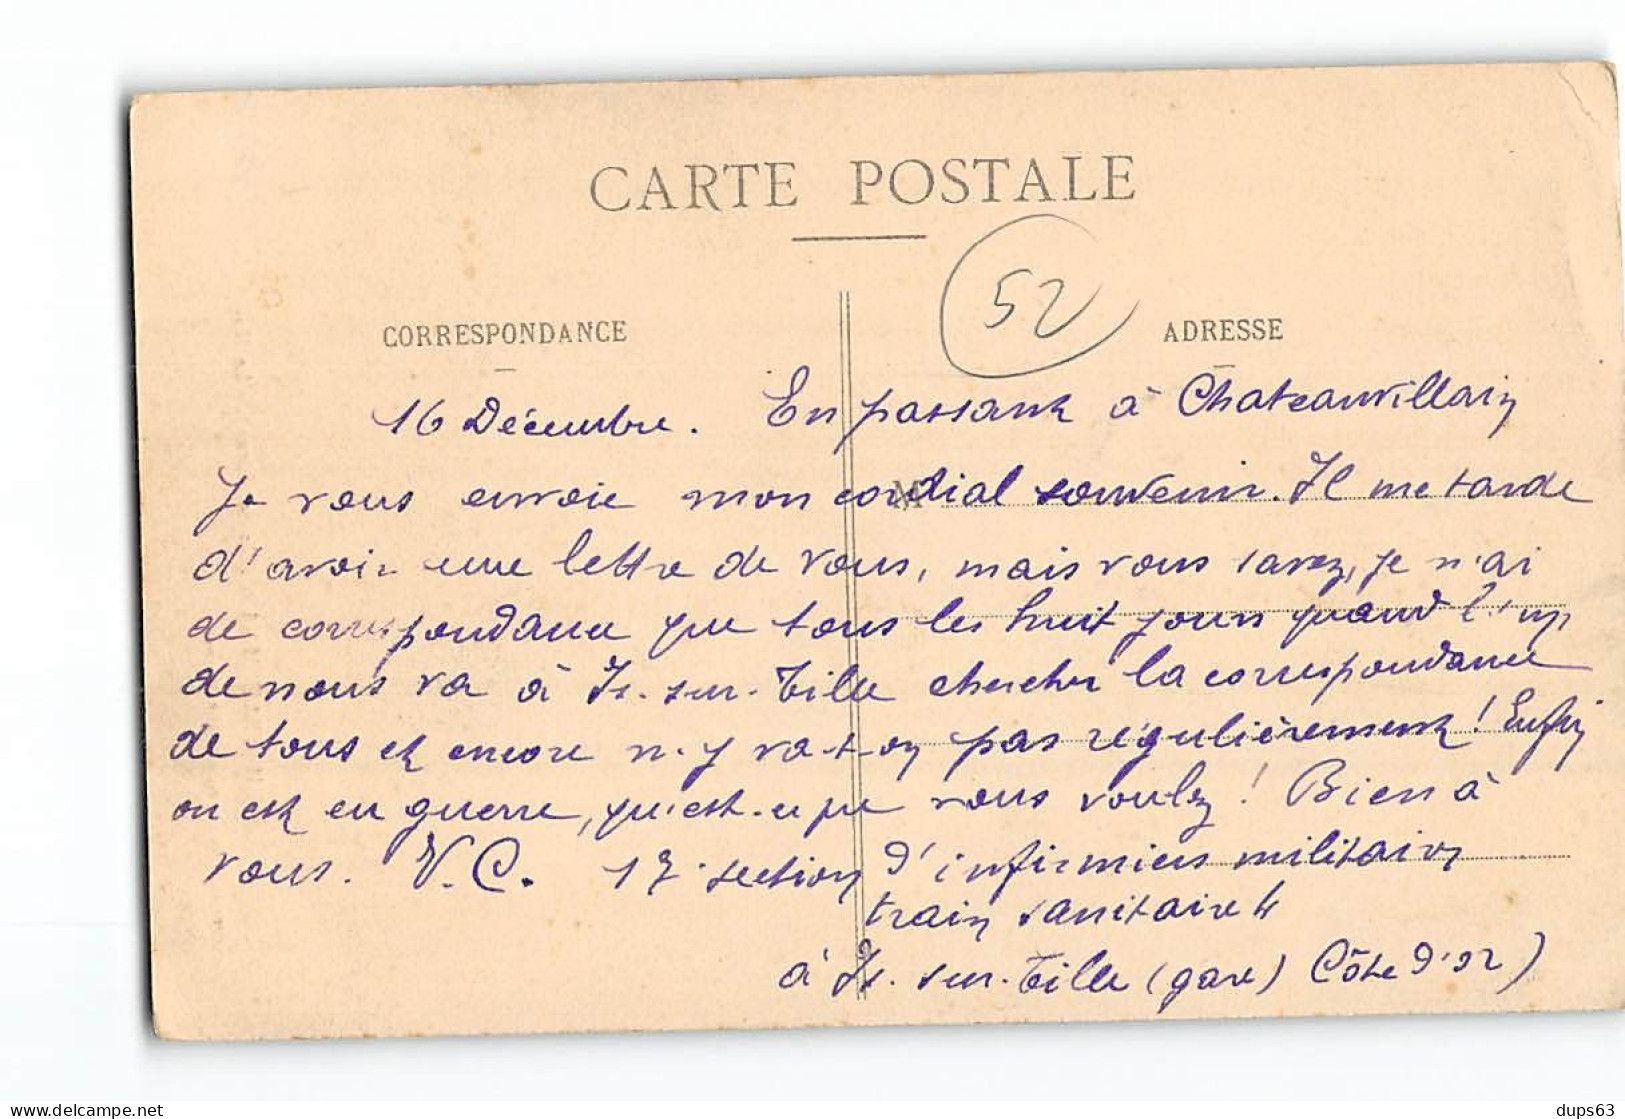 CARTE POSTALE
52
CORRESPONDANCE
ADRESSE
16 Décembre. En passant à Chateauvillain
Je vous envoie mon cordial souvenir. Il me tarde
M
d'avoir une lettre de vous, mais vous savez, je n'ai
de correspondance que tous les huit jours quand l'un
de nous va à Is-sur-Tille chercher la correspondance
de tous et encore n'y va-t-on pas régulièrement! Enfin
on est en guerre, qu'est-ce que vous voulez! Bien à
vous. V.C. 17 section d'infirmiers militaires
train sanitaire 4
à Is-sur-Tille (gare) Côte d'or)
www.delcampe.net
dups63